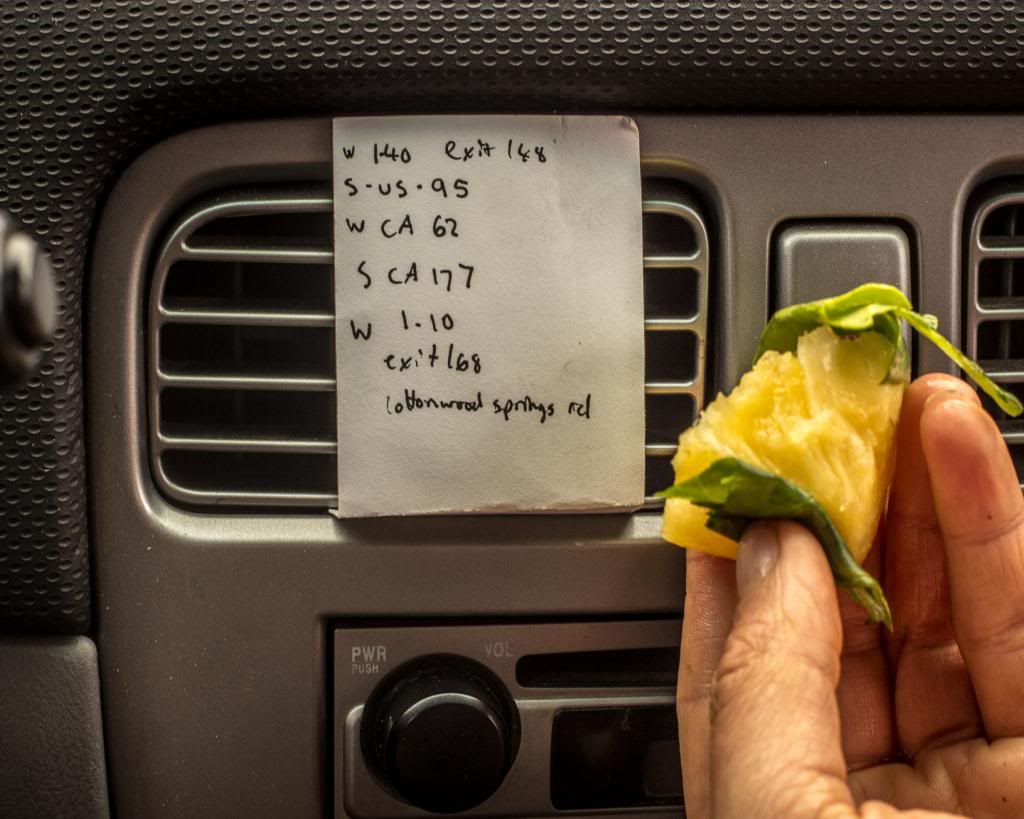 W I-40 exit 148
S-US-95
W CA 62
S CA 177
W I-10
exit 168
Cottonwood springs rd
PWR VOL
PUSH